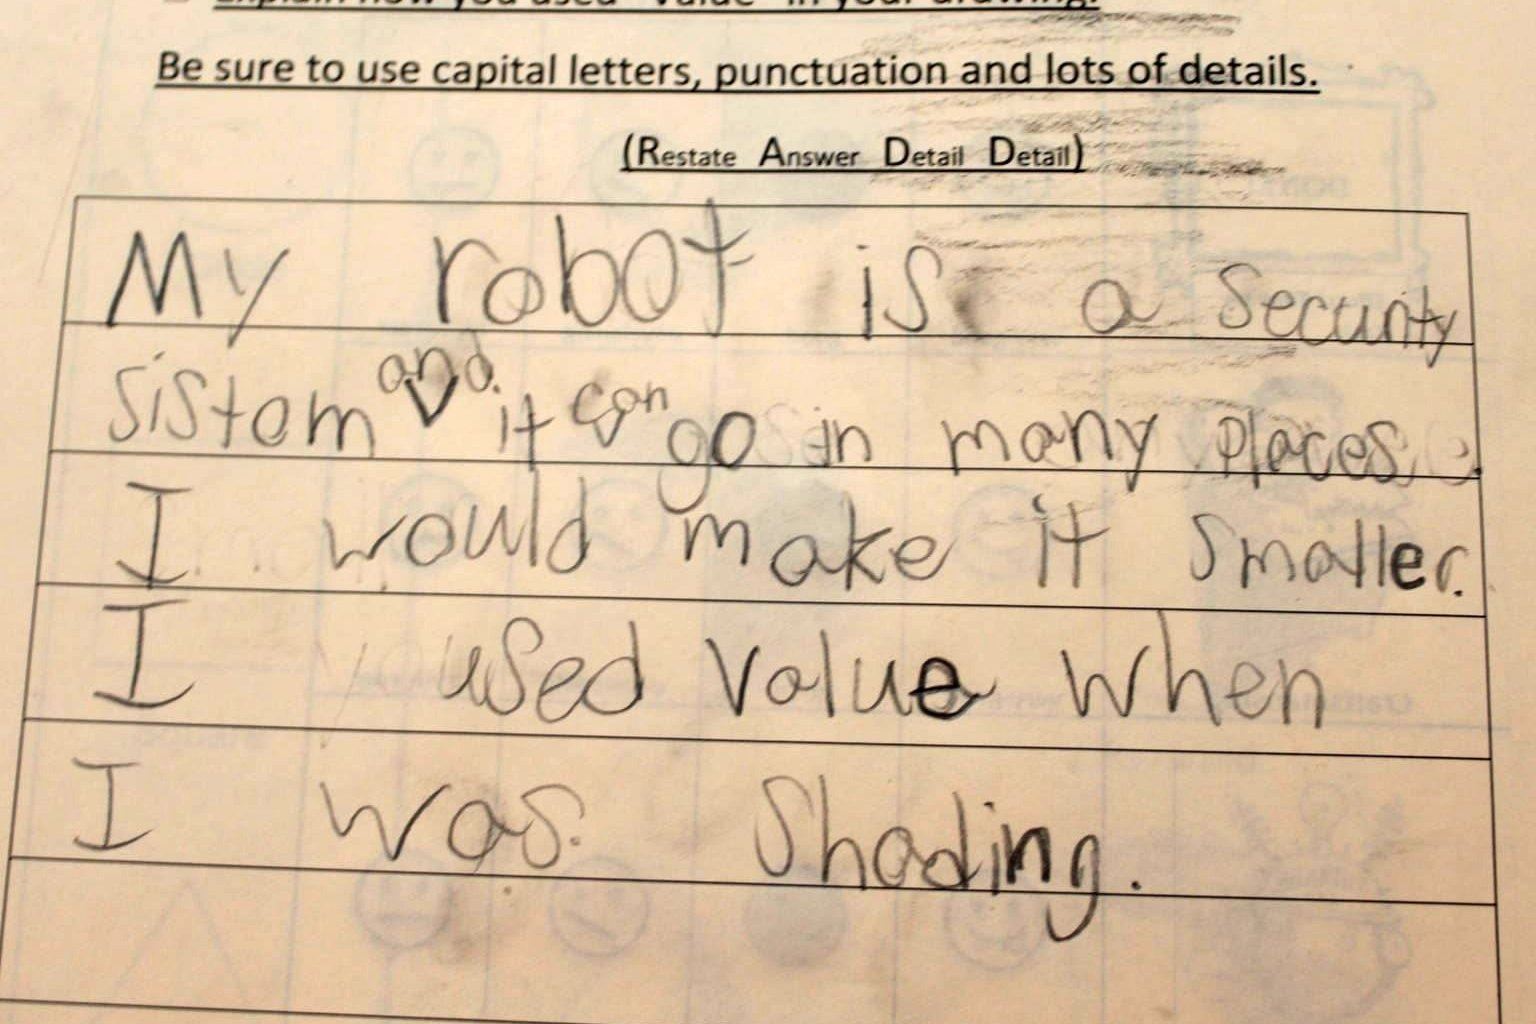 Explain how you used "Value" in your drawing.
Be sure to use capital letters, punctuation and lots of details.
(Restate Answer Detail Detail)
My robot is a security
sistem and it can go in many places.
I would make it smaller.
I used value when
I was shading.